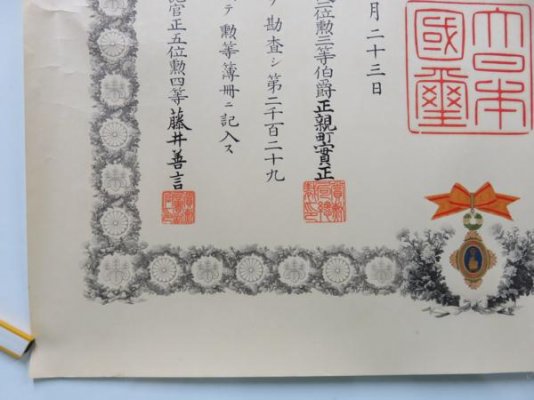 大日本國璽
月二十三日
位勲三等伯爵正親町實正
勘査シ第二千百二十九
テ勲等簿冊ニ記入ス
官正五位勲四等藤井善言